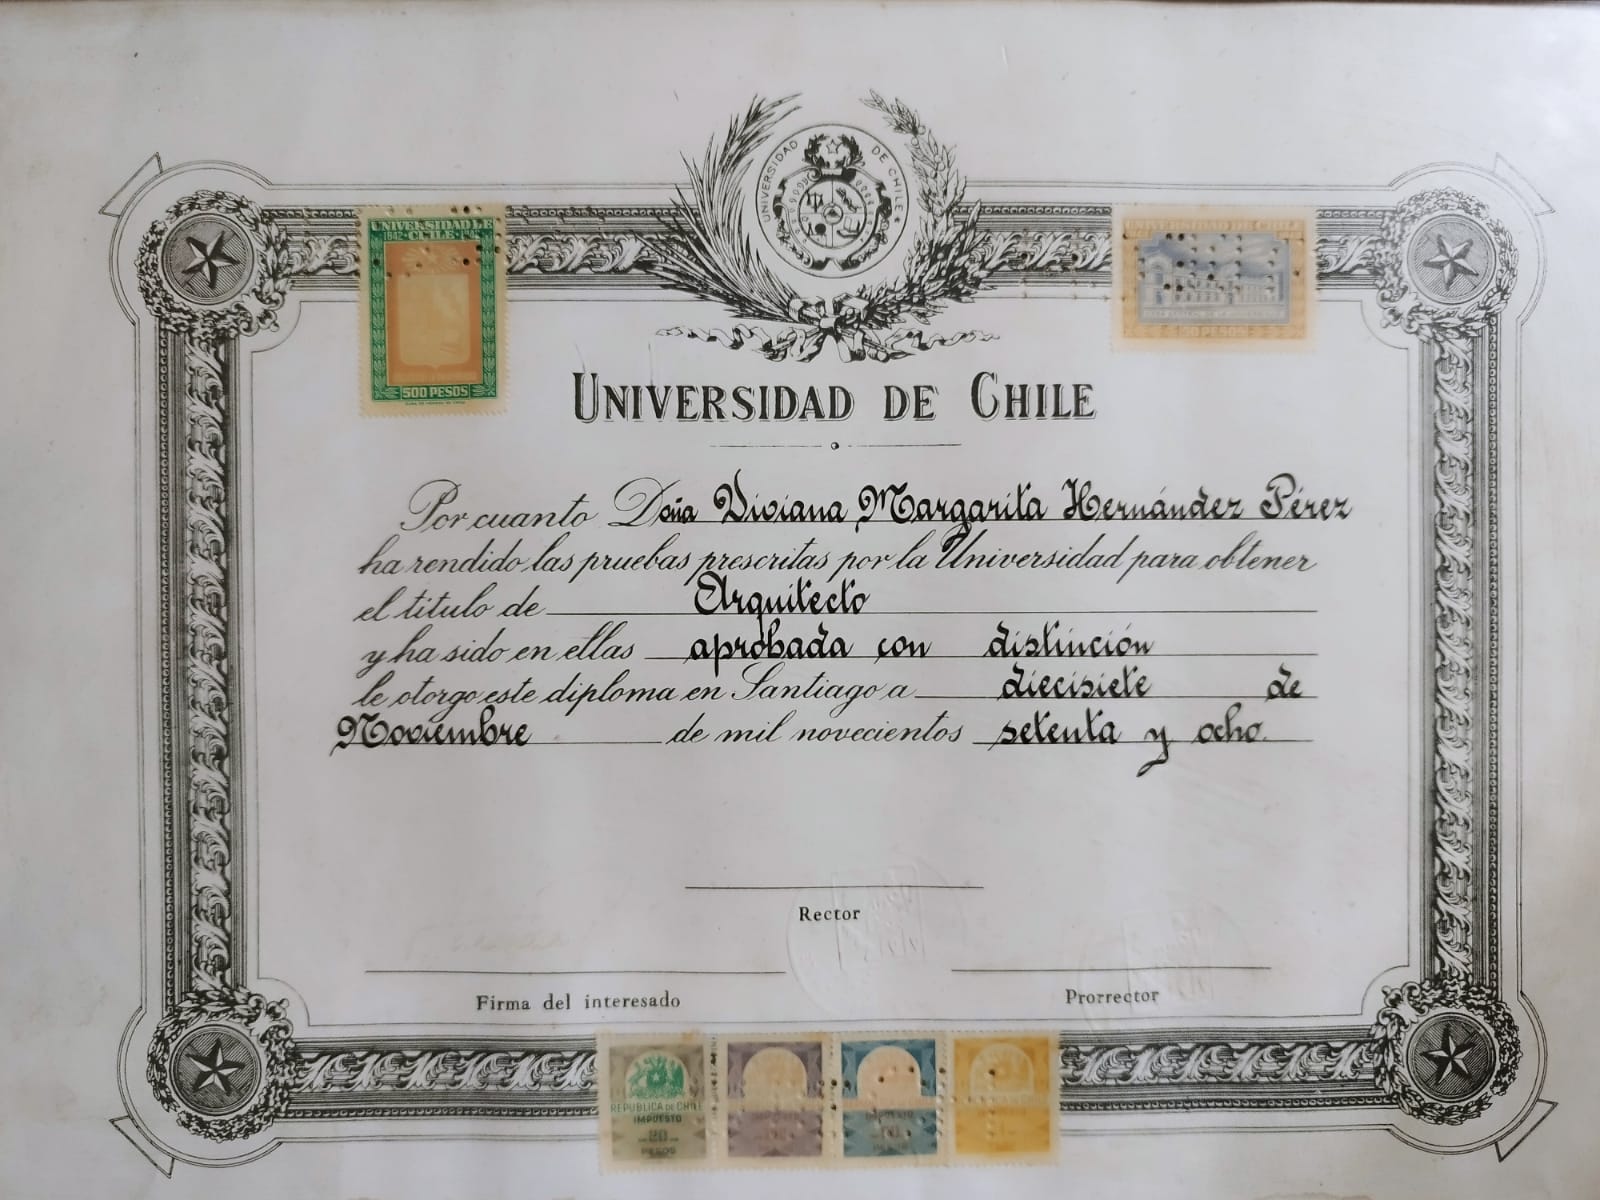 UNIVERSIDAD DE CHILE
UNIVERSIDAD DE CHILE
1842 · CHILE · 1942
500 PESOS
UNIVERSIDAD DE CHILE
CASA CENTRAL DE LA UNIVERSIDAD
50 PESOS
UNIVERSIDAD DE CHILE
Por cuanto Doña Viviana Margarita Hernández Pérez
ha rendido las pruebas prescritas por la Universidad para obtener
el título de Arquitecto
y ha sido en ellas aprobada con distinción
le otorgo este diploma en Santiago a diecisiete de
Noviembre de mil novecientos setenta y ocho.
Rector
Firma del interesado
Prorrector
REPUBLICA DE CHILE
IMPUESTO
20
PESOS
IMPUESTO
PESOS